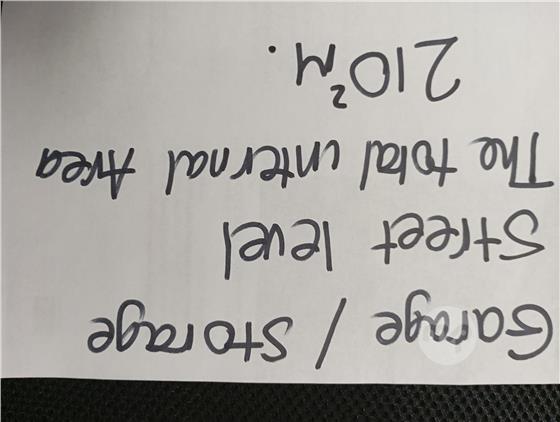 Garage / Storage
Street level
The total internal Area
210²M.